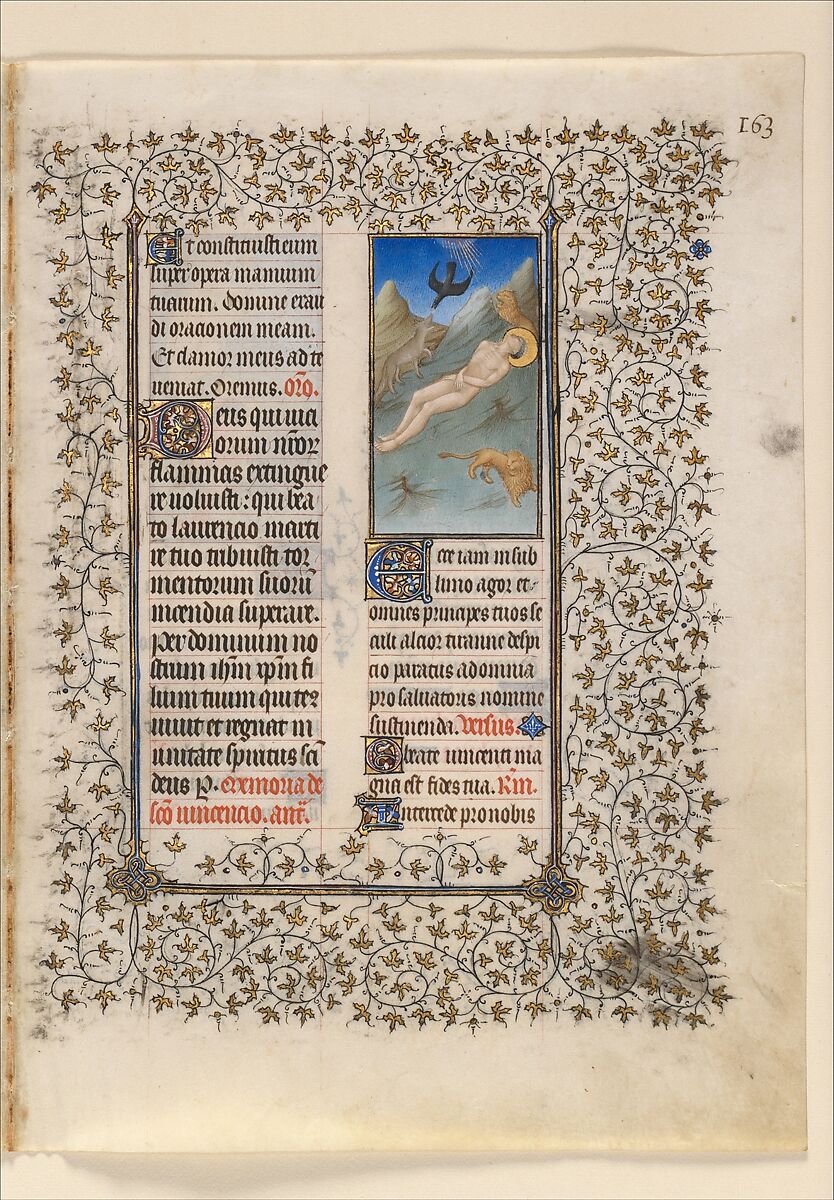 163
Et constituisti eum
super opera manuum
tuarum. Domine exau
di oracionem meam.
Et clamor meus ad te
ueniat. Oremus. oro.
Deus qui uici
orum nror
flammas extingue
re uoluisti: qui bea
to laurencio marti
re tuo tribuisti tor
mentorum suoru
incendia superare.
Per dominum no
strum ihm xpm fi
lium tuum qui tec
uiuit et regnat in
unitate spiritus sci
deus p. Memoria de
sco uincencio. ant.
Ecce iam in sub
limo agor et
omnes principes tuos se
culi alcior tiranne despi
cio paratus ad omnia
pro saluatoris nomine
sustinenda. Versus.
O beate uincenti ma
gna est fides tua. Rm.
Intercede pro nobis